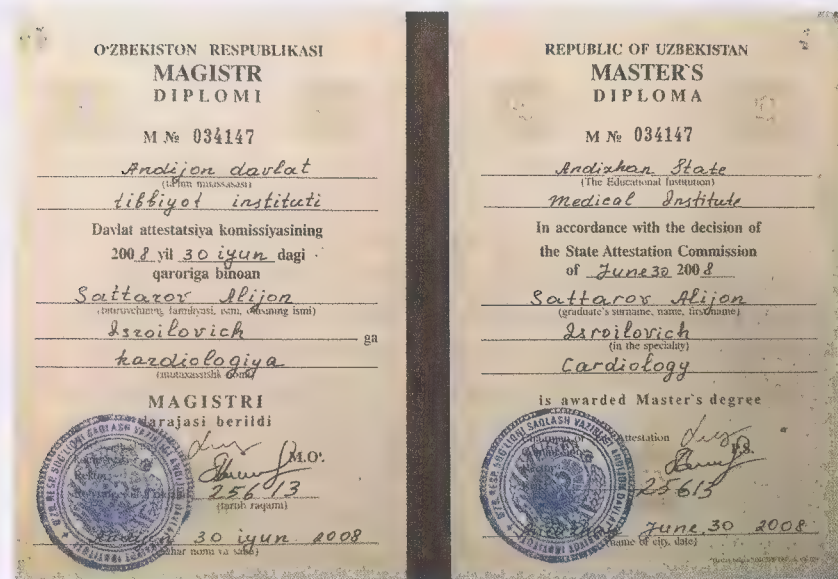 O‘ZBEKISTON RESPUBLIKASI
MAGISTR
DIPLOMI
M № 034147
Andijon davlat
tibbiyot instituti
Davlat attestatsiya komissiyasining
2008 yil 30 iyun dagi
qaroriga binoan
Sattarov Alijon
Isroilovich ga
kardiologiya
MAGISTRI
darajasi berildi
M.O‘.
25613
(tartib raqami)
Andijon 30 iyun 2008
REPUBLIC OF UZBEKISTAN
MASTER`S
DIPLOMA
M № 034147
Andizhan State
(The Educational Institution)
Medical Institute
In accordance with the decision of
the State Attestation Commission
of June 30 2008
Sattarov Alijon
(graduate's surname, name, first name)
Isroilovich
(in the speciality)
Cardiology
is awarded Master`s degree
Attestation
25613
June, 30 2008
(name of city, date)